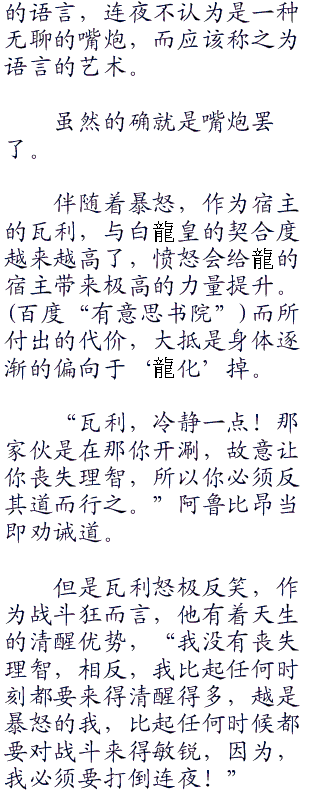 的语言，连夜不认为是一种
无聊的嘴炮，而应该称之为
语言的艺术。
虽然的确就是嘴炮罢
了。
伴随着暴怒，作为宿主
的瓦利，与白龍皇的契合度
越来越高了，愤怒会给龍的
宿主带来极高的力量提升。
(百度“有意思书院”)而所
付出的代价，大抵是身体逐
渐的偏向于‘龍化’掉。
“瓦利，冷静一点！那
家伙是在那你开涮，故意让
你丧失理智，所以你必须反
其道而行之。”阿鲁比昂当
即劝诫道。
但是瓦利怒极反笑，作
为战斗狂而言，他有着天生
的清醒优势，“我没有丧失
理智，相反，我比起任何时
刻都要来得清醒得多，越是
暴怒的我，比起任何时候都
要对战斗来得敏锐，因为，
我必须要打倒连夜！”